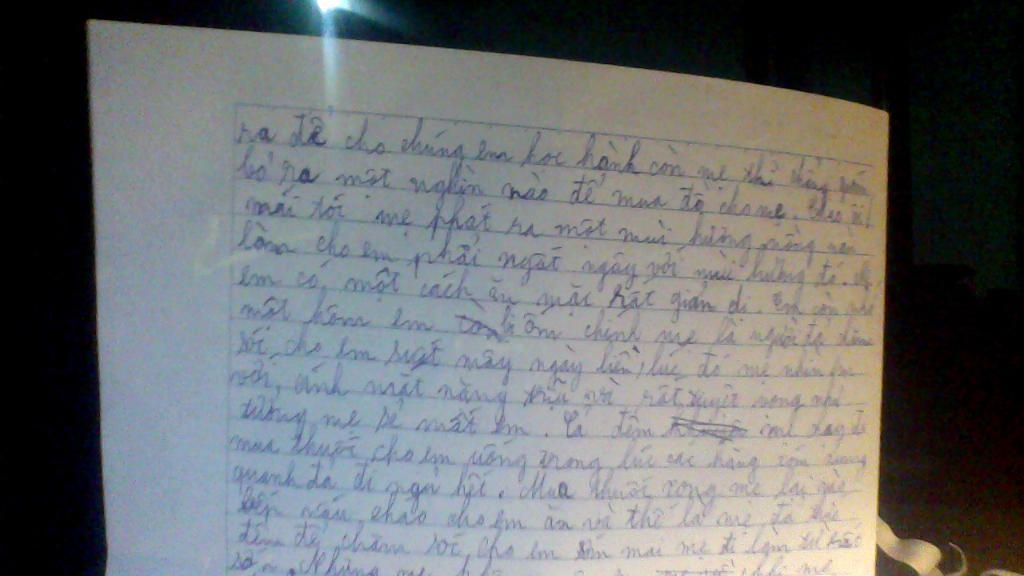 ra để cho chúng em học hành còn mẹ thì chẳng
bỏ ra một nghìn nào để mua đồ cho mẹ.
mái tóc mẹ phát ra một mùi hương nồng nàn
làm cho em phải ngất ngây với mùi hương đó.
em có một cách ăn mặc rất giản dị. Em còn nhớ
một hôm em bị ốm chính mẹ là người đã chăm
sóc cho em suốt mấy ngày liền, lúc đó mẹ nhìn em
với ánh mặt nặng và rất tuyệt vọng như
tưởng mẹ sẽ mất em. Cả đêm mẹ đi
mua thuốc cho em uống trong lúc các hàng xóm xung
quanh đã đi ngủ hết. Mua thuốc xong mẹ lại vào
bếp nấu cháo cho em ăn và thế là mẹ đã
đêm để chăm sóc cho em mai mẹ đi làm
Nhưng mẹ